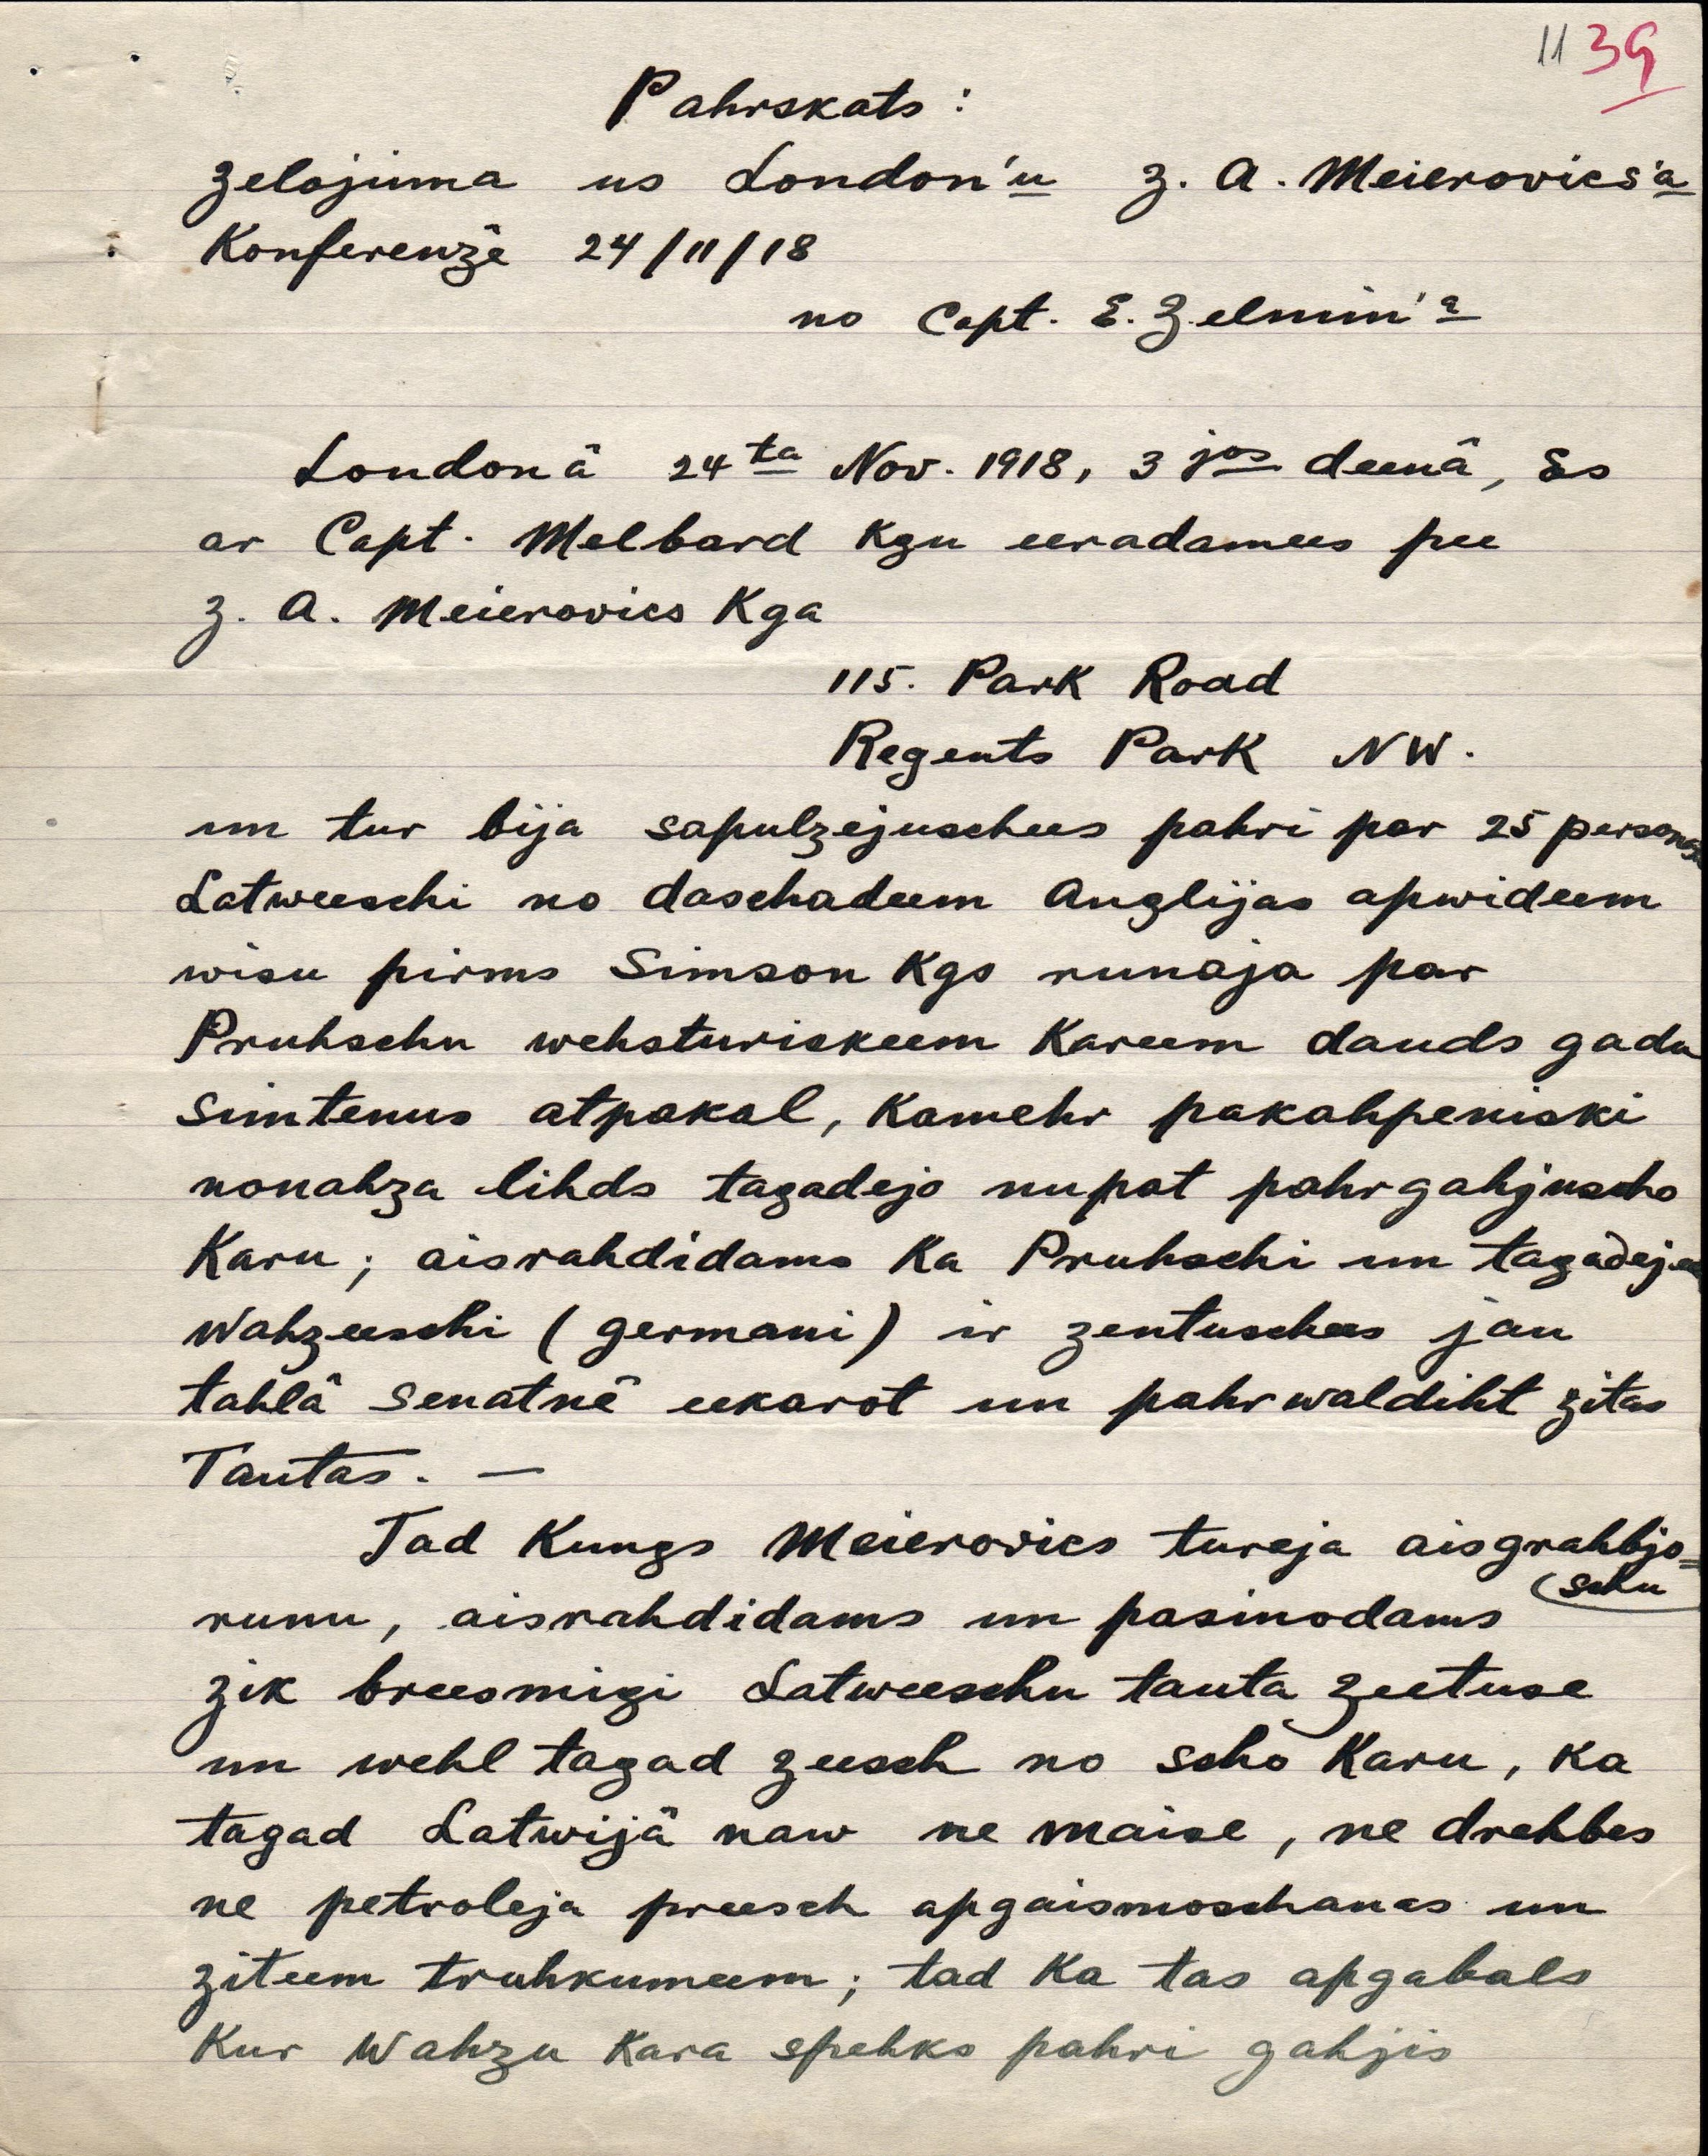 11 39
Pahrskats:
zelojuma us London'u Z. A. Meierovics'a
Konferenzê 24/11/18
no Capt. E. Zelmin'a
Londonâ 24ta Nov. 1918, 3jos deenâ, Es
ar Capt. Melbard Kgu eeradamees pee
Z. A. Meierovics Kga
115. Park Road
Regents Park NW.
un tur bija sapulzejuschees pahri par 25 personas
Latweeschi no daschadeem Anglijas apwideem
wisu pirms Simson Kgs runaja par
Pruhschu wehsturiskeem Kareem dauds gadu
Simtenus atpakal, Kamehr pakahpeniski
nonahza lihds tagadejo nupat pahrgahjuscho
Karu; aisrahdidams Ka Pruhschi un tagadejee
Wahzeeschi (germani) ir zentuschees jau
tahlâ Senatnê eekarot un pahrwaldiht zitas
Tautas. —
Tad Kungs Meierovics tureja aisgrahbjo=
(schu
runu, aisrahdidams un pasinodams
zik breesmigi Latweeschu tauta zeetuse
un wehl tagad zeesch no scho Karu, Ka
tagad Latwijâ naw ne maise, ne drehbes
ne petroleja preesch apgaismoschanas un
ziteem truhkumeem; tad Ka tas apgabals
Kur Wahzu Kara spehks pahri gahjis